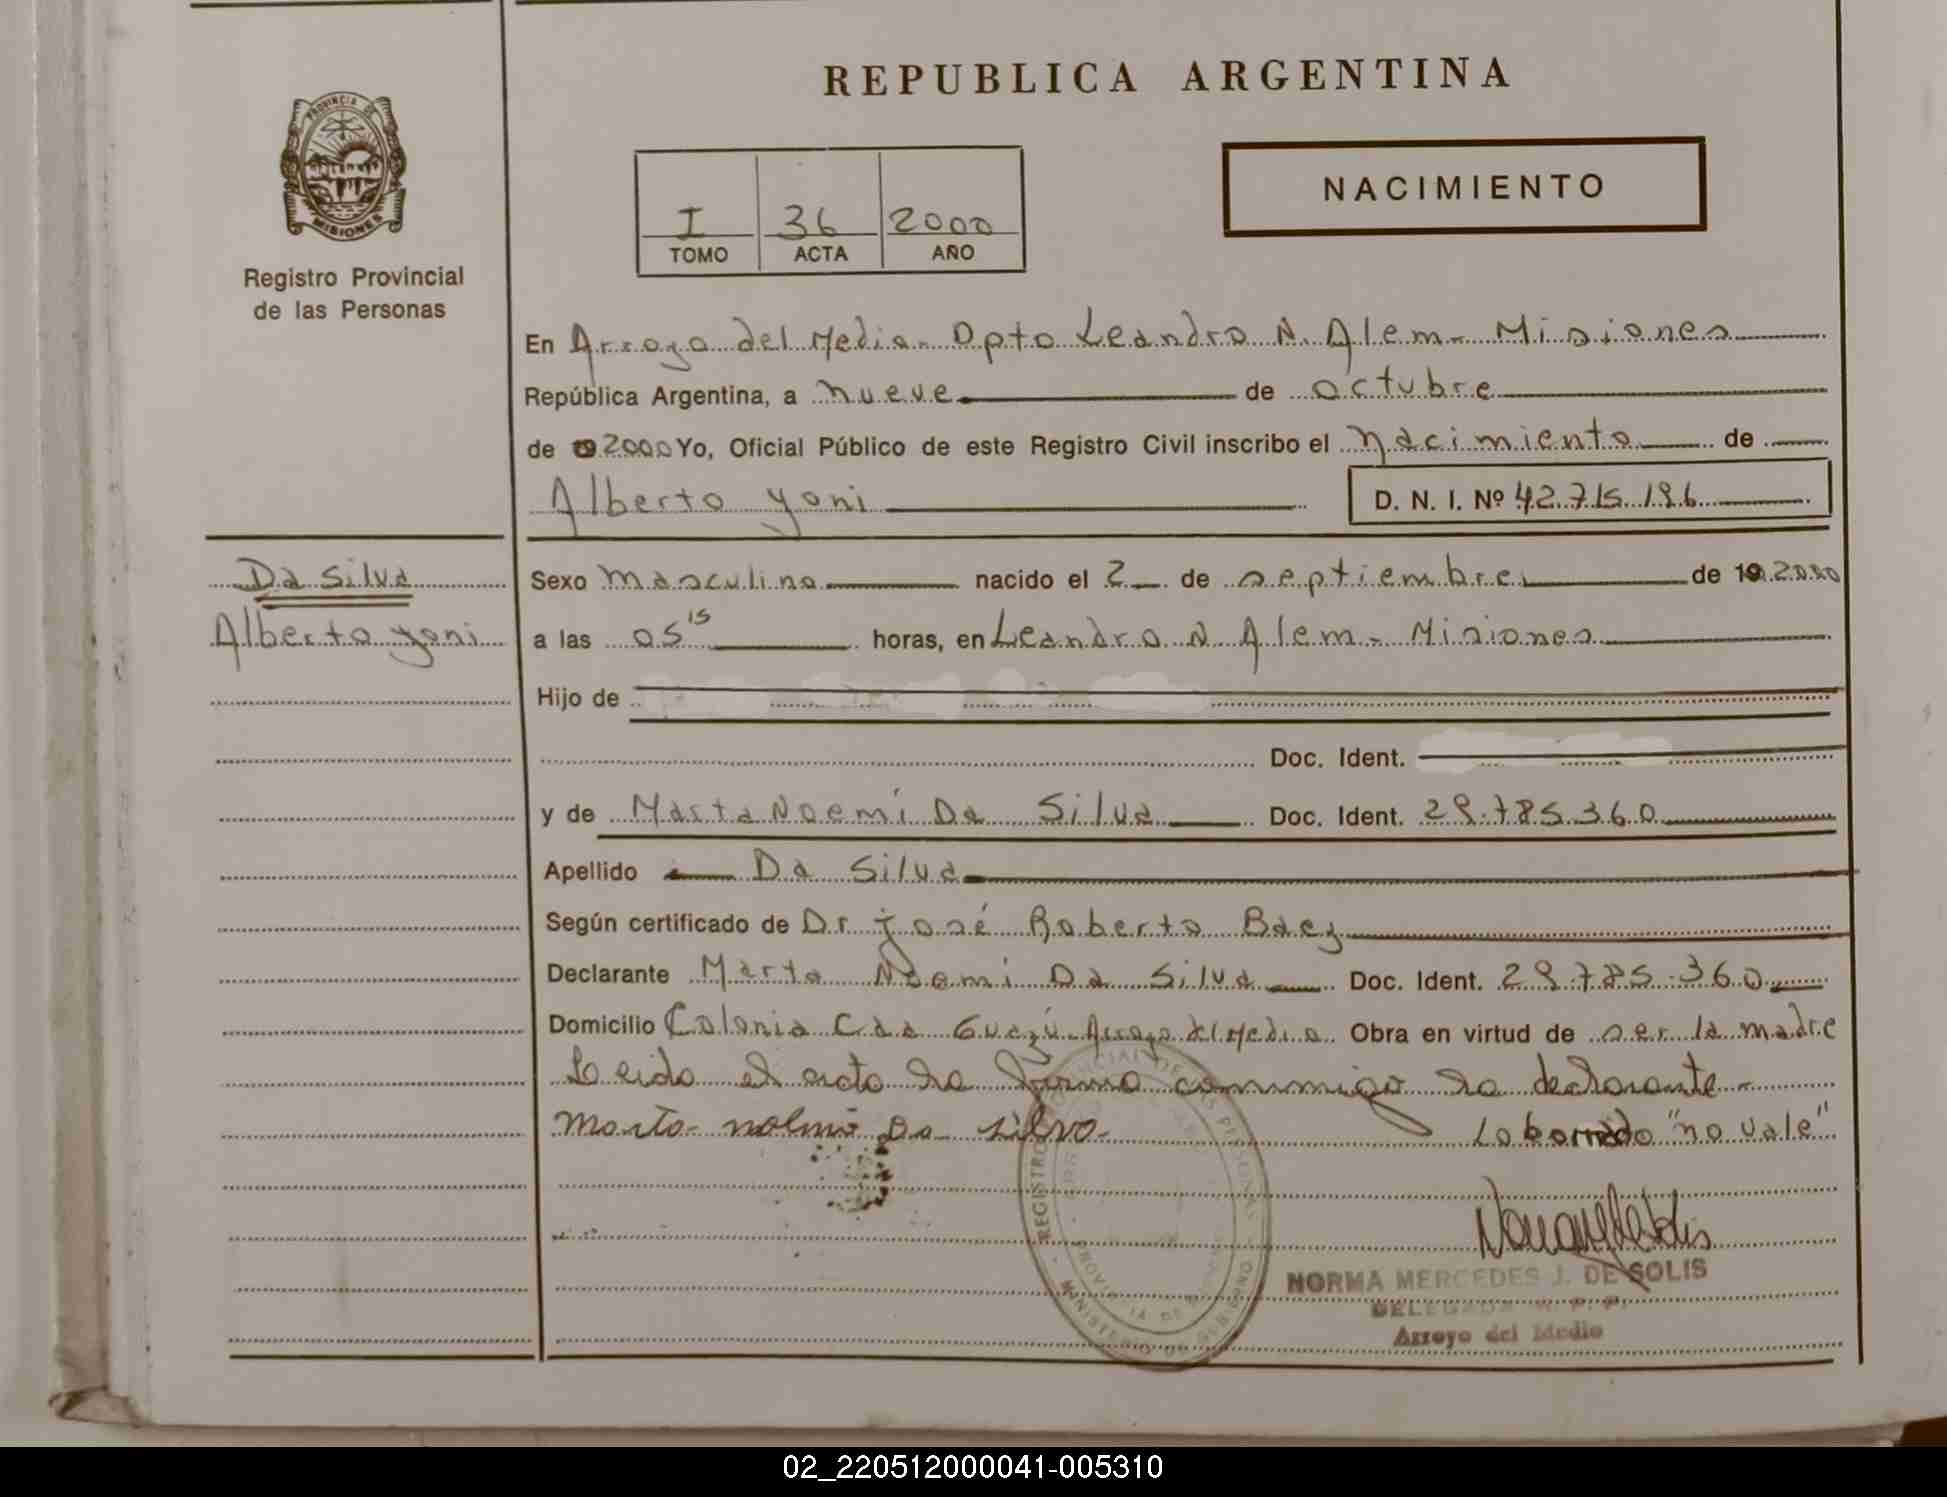 REPUBLICA ARGENTINA
PROVINCIA DE
MISIONES
Registro Provincial
de las Personas
I 36 2000
TOMO ACTA AÑO
NACIMIENTO
En Arroyo del Medio- Dpto Leandro N. Alem- Misiones
República Argentina, a nueve de octubre
de 2000 Yo, Oficial Público de este Registro Civil inscribo el nacimiento de
Alberto yoni D. N. I. Nº 42.715.196
Da Silva
Alberto yoni
Sexo masculino nacido el 2 de septiembre de 19 2000
a las 05 15 horas, en Leandro N Alem- Misiones
Hijo de
Doc. Ident.
y de Marta Noemí Da Silva Doc. Ident. 29.785.360
Apellido Da Silva
Según certificado de Dr josé Roberto Baez
Declarante Marta Noemí Da Silva Doc. Ident. 29.785.360
Domicilio Colonia Caa Guazú- Arroyo del Medio Obra en virtud de ser la madre
Leida el acta la firma conmigo la declarante-
Marta noemi Da silva- Lo borrado "no vale"
REGISTRO PROVINCIAL DE LAS PERSONAS
MINISTERIO DE GOBIERNO
PROVINCIA DE MISIONES
NORMA MERCEDES J. DE SOLIS
DELEGADA R. P. P.
Arroyo del Medio
02_220512000041-005310